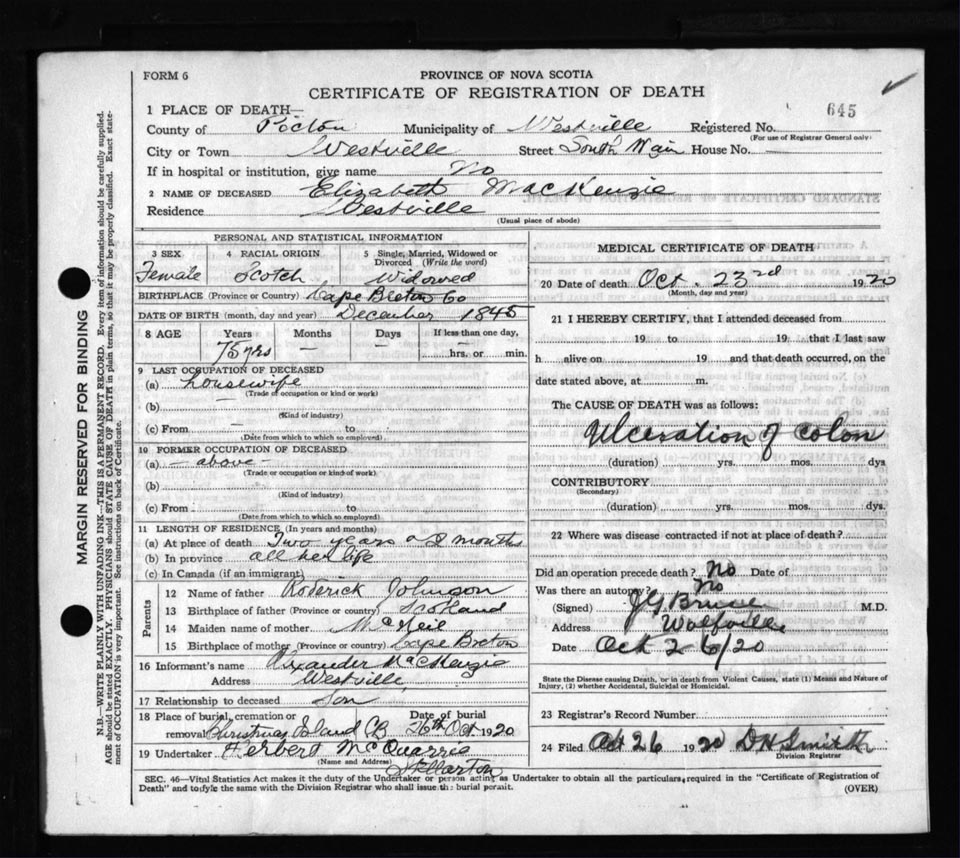 FORM 6
PROVINCE OF NOVA SCOTIA
CERTIFICATE OF REGISTRATION OF DEATH
645
1 PLACE OF DEATH—
County of Pictou Municipality of Westville Registered No.
(For use of Registrar General only)
City or Town Westville Street South Main House No. —
If in hospital or institution, give name No
2 NAME OF DECEASED Elizabeth MacKenzie
Residence Westville
(Usual place of abode)
PERSONAL AND STATISTICAL INFORMATION
3 SEX 4 RACIAL ORIGIN 5 Single, Married, Widowed or Divorced (Write the word)
Female Scotch Widowed
BIRTHPLACE (Province or Country) Cape Breton Co
DATE OF BIRTH (month, day and year) December 1845
8 AGE Years Months Days If less than one day,
75 yrs — — hrs. or min.
9 LAST OCCUPATION OF DECEASED
(a) housewife
(Trade of occupation or kind or work)
(b) —
(Kind of industry)
(c) From — to
(Date from which to which so employed)
10 FORMER OCCUPATION OF DECEASED
(a) — above —
(Trade or occupation or kind of work)
(b)
(Kind of industry)
(c) From to
(Date from which to which so employed)
11 LENGTH OF RESIDENCE (In years and months)
(a) At place of death Two years months
(b) In province all her life
(c) In Canada (if an immigrant)
Parents
12 Name of father Roderick Johnson
13 Birthplace of father (Province or country) Scotland
14 Maiden name of mother McNeil
15 Birthplace of mother (Province or country) Cape Breton
16 Informant's name Alexander MacKenzie
Address Westville
17 Relationship to deceased Son
18 Place of burial, cremation or Date of burial
removal Christmas Island CB 26th Oct 1920
19 Undertaker Herbert McQuarrie
(Name and Address)
Stellarton
MEDICAL CERTIFICATE OF DEATH
20 Date of death Oct. 23rd 1920
(Month, day and year)
21 I HEREBY CERTIFY, that I attended deceased from
19 to 19 that I last saw
h alive on 19 and that death occurred, on the
date stated above, at m.
The CAUSE OF DEATH was as follows:
Ulceration of colon
(duration) yrs. mos. dys
CONTRIBUTORY
(Secondary)
(duration) yrs. mos. dys.
22 Where was disease contracted if not at place of death?
Did an operation precede death? No Date of
Was there an autopsy? No
(Signed) M.D.
Address
Date Oct 26/20
State the Disease causing Death, or in death from Violent Causes, state (1) Means and Nature of
Injury, (2) whether Accidental, Suicidal or Homicidal.
23 Registrar's Record Number
24 Filed Oct 26 1920 D H Smith
Division Registrar
SEC. 46—Vital Statistics Act makes it the duty of the Undertaker or person acting as Undertaker to obtain all the particulars required in the "Certificate of Registration of
Death" and to file the same with the Division Registrar who shall issue the burial permit.
(OVER)
MARGIN RESERVED FOR BINDING
N.B.—WRITE PLAINLY WITH UNFADING INK—THIS IS A PERMANENT RECORD. Every item of information should be carefully supplied.
AGE should be stated EXACTLY. PHYSICIANS should STATE CAUSE OF DEATH in plain terms, so that it may be properly classified. Exact state-
ment of OCCUPATION is very important. See instructions on back of Certificate.